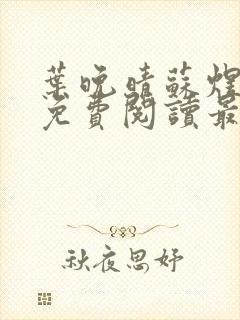 葉晚晴蘇煜
免費閱讀最
秋夜思妤